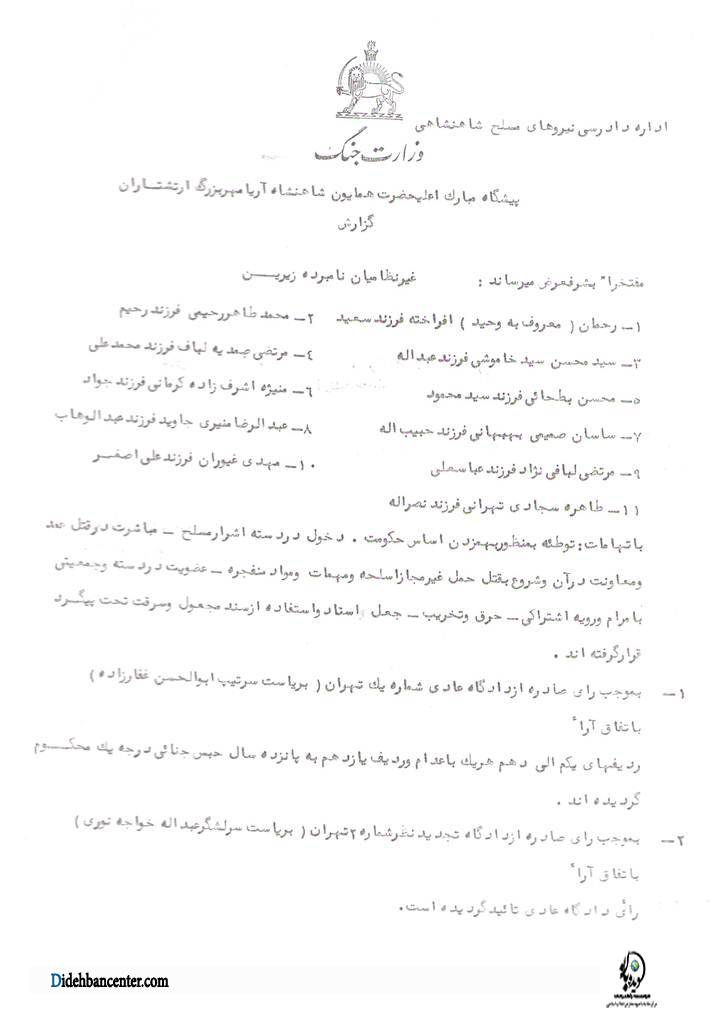 اداره دادرسی نیروهای مسلح شاهنشاهی
وزارت جنگ
پیشگاه مبارك اعلیحضرت همایون شاهنشاه آریا مهر بزرگ ارتشتاران
گزارش
مفتخرا" بشرفعرض میرساند : غیرنظامیان نامبرده زیرین
۱ـ رحمان ( معروف به وحید ) افراخته فرزند سعید ۲ـ محمد طاهر رحیمی فرزند رحیم
۳ـ سید محسن سید خاموشی فرزند عبد اله ۴ـ مرتضی صمدیه لباف فرزند محمد علی
۵ـ محسن بطحائی فرزند سید محمود ۶ـ منیژه اشرف زاده کرمانی فرزند جواد
۷ـ ساسان صمیمی بهبهانی فرزند حبیب اله ۸ـ عبد الرضا منیری جاوید فرزند عبد الوهاب
۹ـ مرتضی لبافی نژاد فرزند عباسعلی ۱۰ـ مهدی غیوران فرزند علی اصغر
۱۱ـ طاهره سجادی تهرانی فرزند نصراله
با تهامات : توطئه بمنظور بهمزدن اساس حکومت . دخول در دسته اشرار مسلح ـ مباشرت در قتل عمد
ومعاونت در آن وشروع بقتل حمل غیر مجاز اسلحه ومهمات ومواد منفجره ـ عضویت در دسته وجمعیتی
با مرام ورویه اشتراکی ـ حرق وتخریب ـ جعل اسناد واستفاده از سند مجعول وسرقت تحت پیگرد
قرار گرفته اند .
۱ـ بموجب رای صادره از دادگاه عادی شماره یك تهران ( بریاست سرتیپ ابوالحسن غفارزاده )
با تفاق آراء
ردیفهای یکم الی دهم هریك باعدام وردیف یازدهم به پانزده سال حبس جنائی درجه یك محکوم
گردیده اند .
۲ـ بموجب رای صادره از دادگاه تجدید نظر شماره ۲ تهران ( بریاست سرلشگر عبد اله خواجه نوری )
با تفاق آراء
رأی دادگاه عادی تائید گردیده است.
Didehbancenter.com